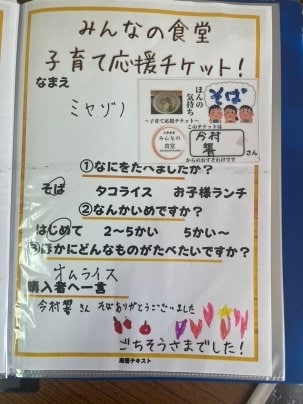 みんなの食堂
子育て応援チケット！
なまえ
ミヤゾノ
ほんの
気持ち
そば
～子育て応援チケット～
このチケットは
みんなの
食堂
今村
響
さん
からのおすそわけです
①なにをたべましたか？
そば タコライス お子様ランチ
②なんかいめですか？
はじめて 2～5かい 5かい～
③ほかにどんなものがたべたいですか？
オムライス
購入者へ一言
今村響さん そばありがとうございました
ごちそうさまでした！
段落テキスト